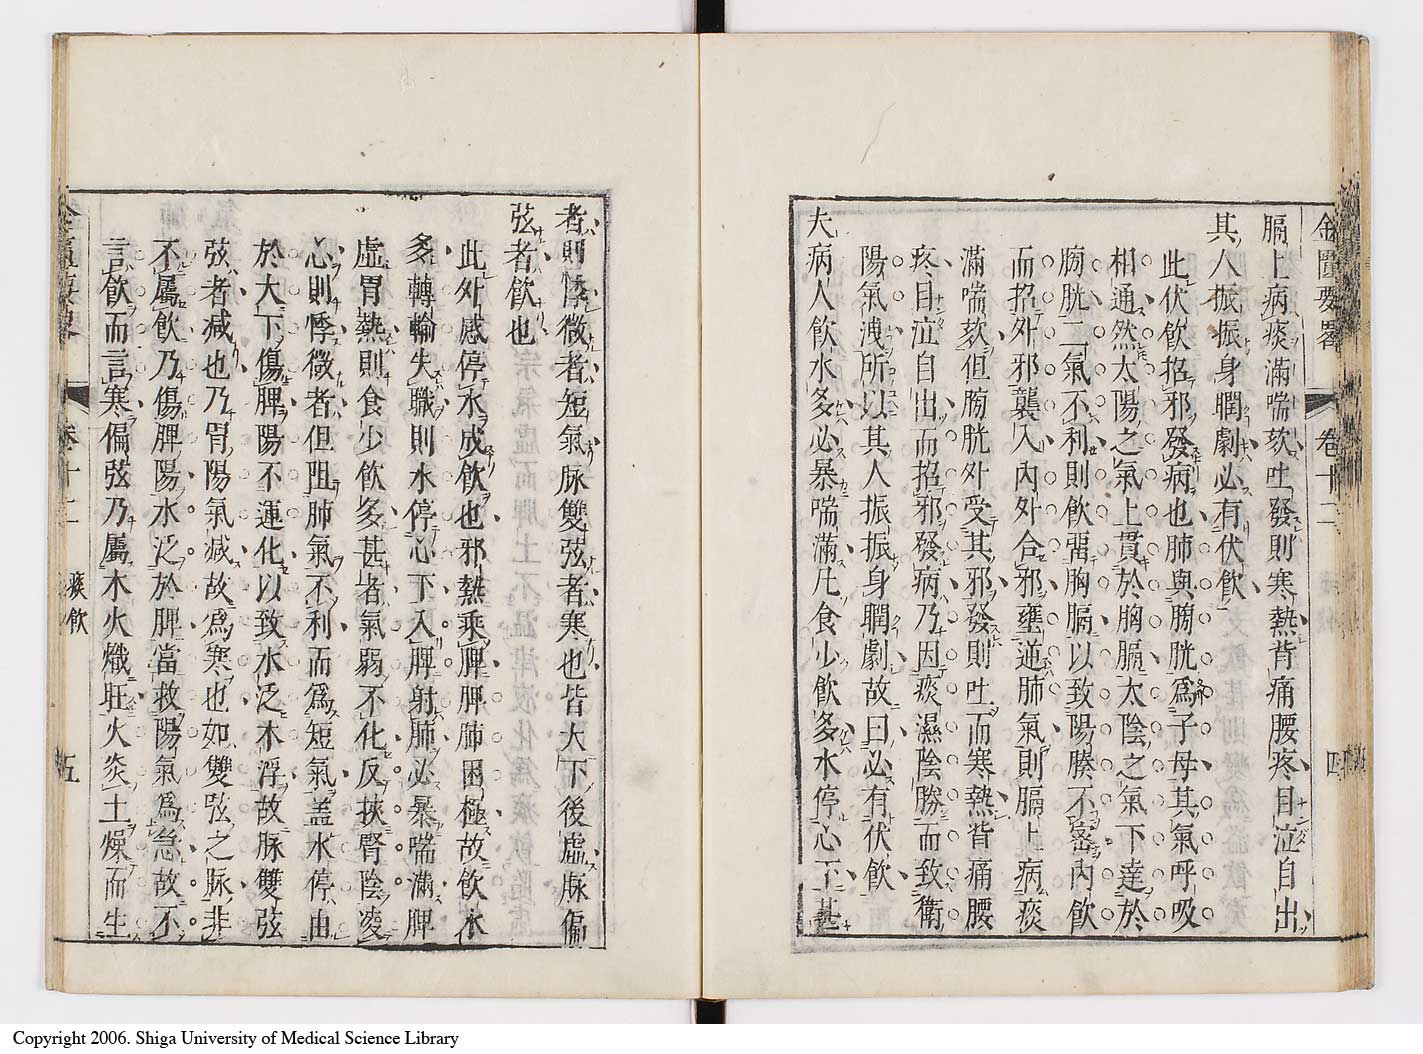 金匱要畧 卷十二 四
膈上病痰滿喘欬吐發則寒熱背痛腰疼目泣自出
其人振振身瞤劇必有伏飲
此伏飲招邪發病也肺與膀胱爲子母其氣呼吸
相通然太陽之氣上貫於胸膈太陰之氣下達於
膀胱二氣不利則飲留胸膈以致陽腠不密內飲
而招外邪襲入內外合邪壅逆肺氣則膈上病痰
滿喘欬但膀胱外受其邪發則吐而寒熱背痛腰
疼目泣自出而招邪發病乃因痰濕陰勝而致衛
陽氣洩所以其人振振身瞤劇故曰必有伏飲
夫病人飲水多必暴喘滿凡食少飲多水停心下甚
者則悸微者短氣脉雙弦者寒也皆大下後虛脉偏
弦者飲也
此外感停水成飲也邪熱乘脾脾肺困極故飲水
多轉輸失職則水停心下入脾射肺必暴喘滿脾
虛胃熱則食少飲多甚者氣弱不化反挾腎陰凌
心則悸微者但阻肺氣不利而爲短氣蓋水停由
於大下傷脾陽不運化以致水泛木浮故脉雙弦
弦者減也乃胃陽氣減故爲寒也如雙弦之脉非
不屬飲乃傷脾陽水泛於脾當救陽氣爲急故不
言飲而言寒偏弦乃屬木火熾旺火炎土燥而生
卷十二 痰飲 五
Copyright 2006. Shiga University of Medical Science Library